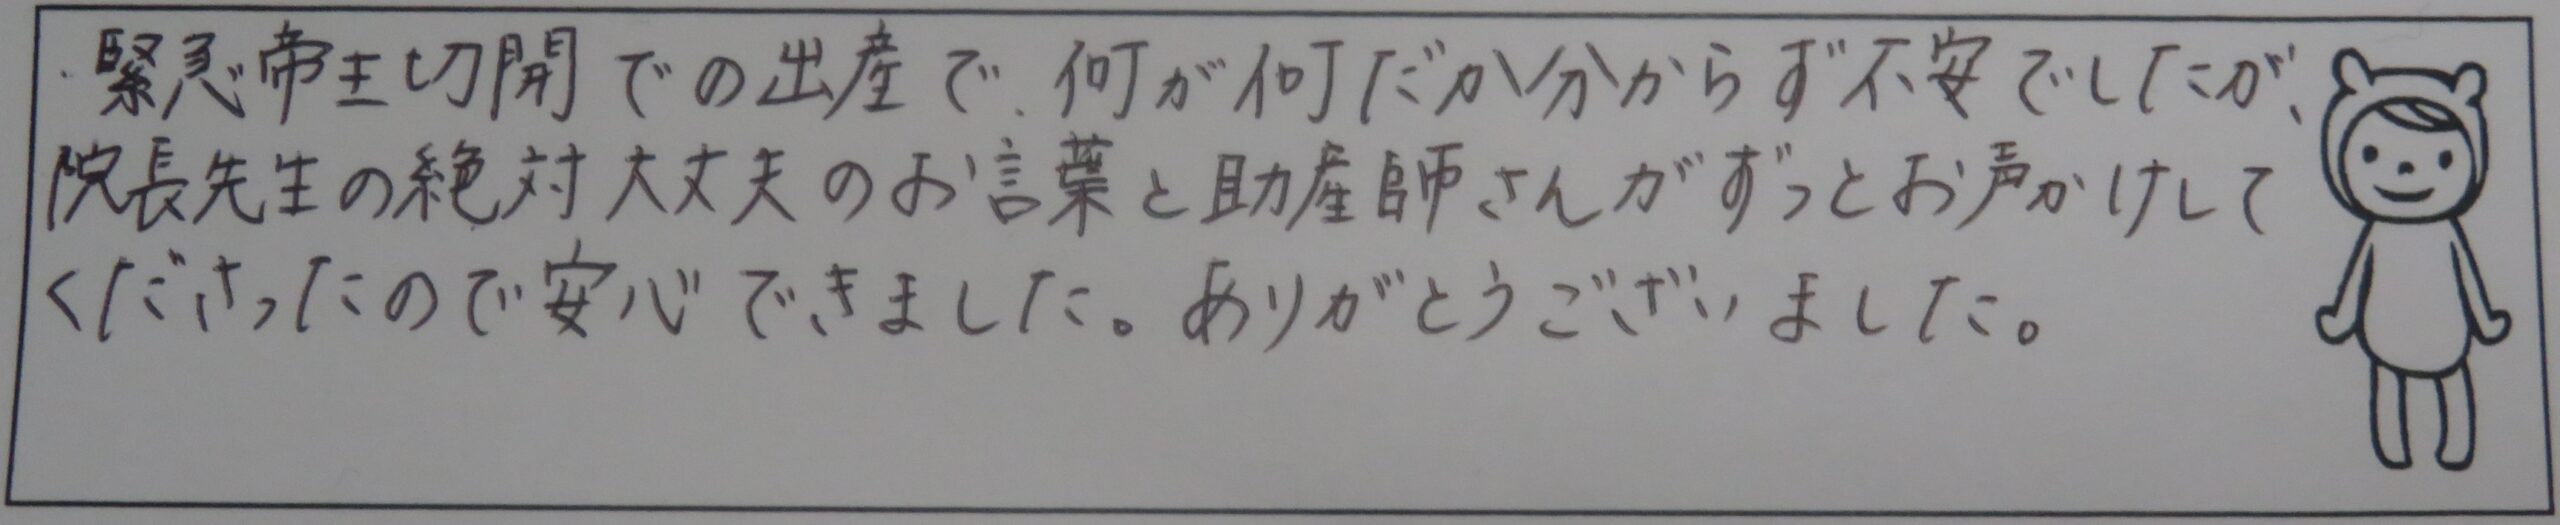 緊急帝王切開での出産で、何が何だか分からず不安でしたが、
院長先生の絶対大丈夫のお言葉と助産師さんがずっとお声かけして
くださったので安心できました。ありがとうございました。